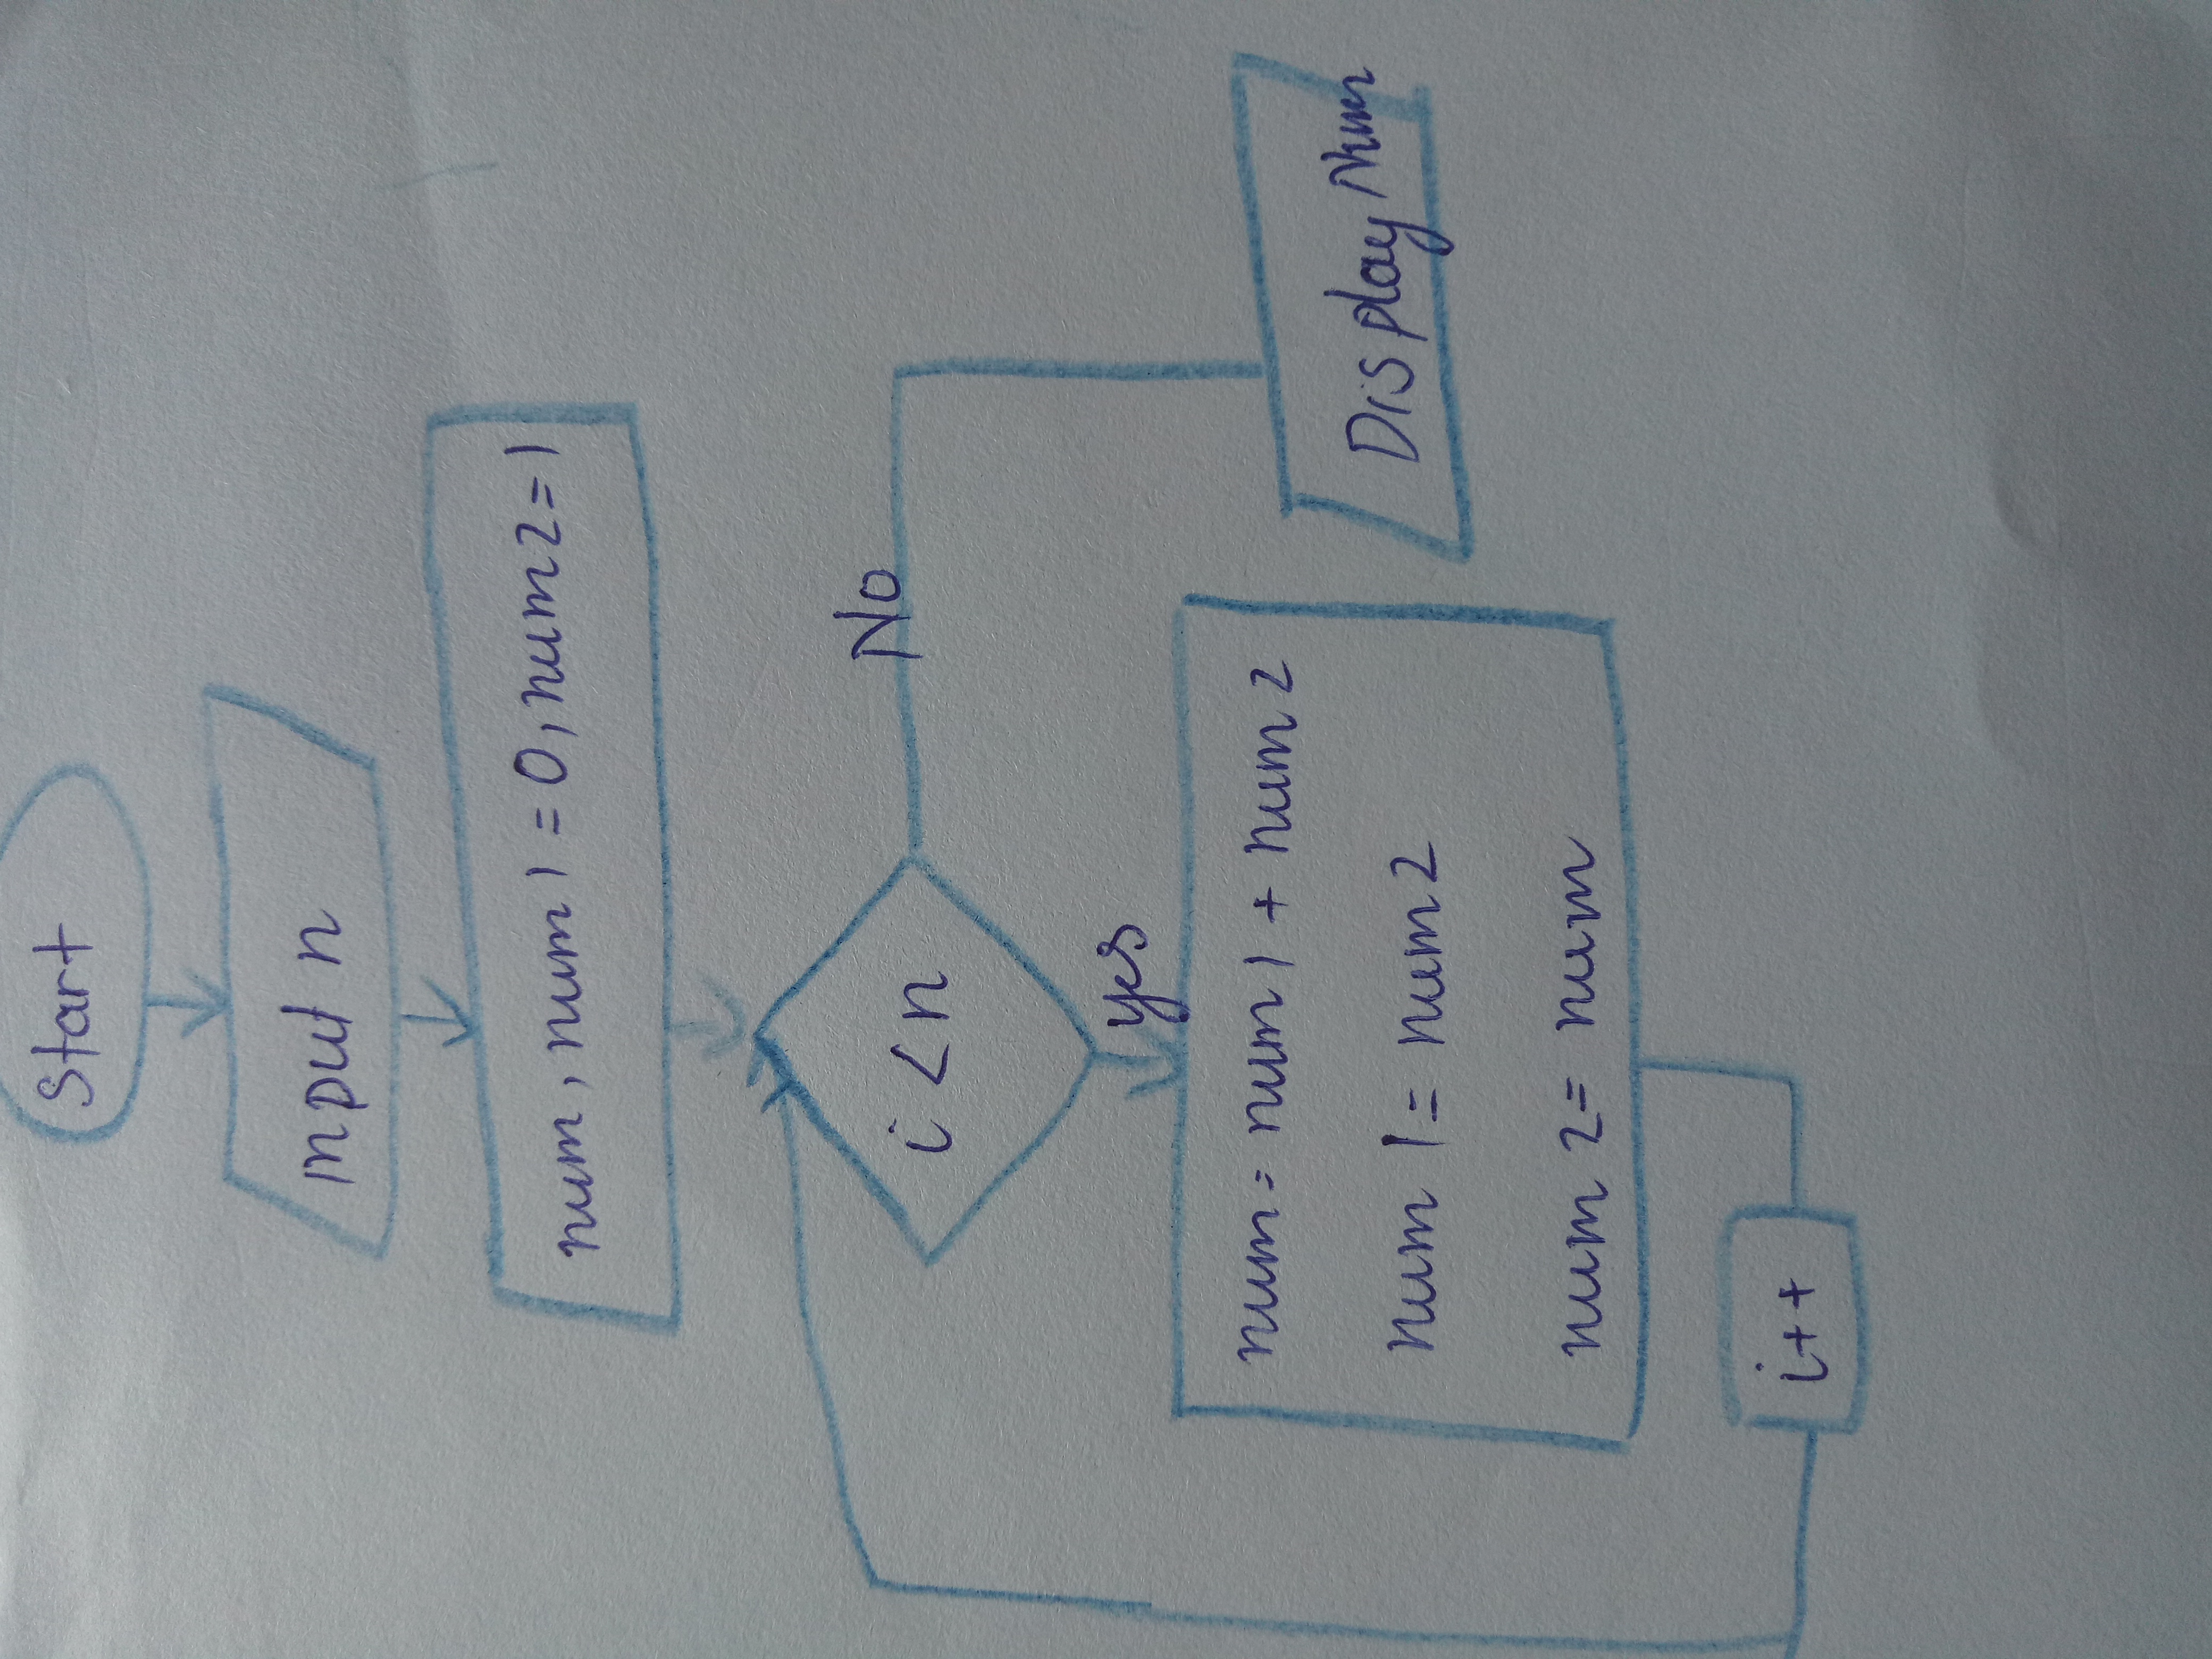 Start
input n
num, num1=0, num2=1
i<n
No
yes
num= num1 + num2
num1= num2
num2= num
Display Num
i++